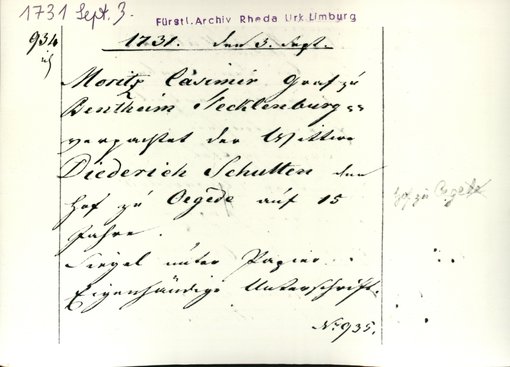 1731 Sept. 3.
Fürstl. Archiv Rheda Urk. Limburg
934
1731. den 3. Sept.
Moritz Casimir Graf zu
Bentheim Tecklenburg
verpachtet der Wittwe
Diederich Schulten den
Hof zu Oegede auf 15
Jahre.
Hof zu Oegede
Siegel unter Papier.
Eigenhändige Unterschrift.
No 935.